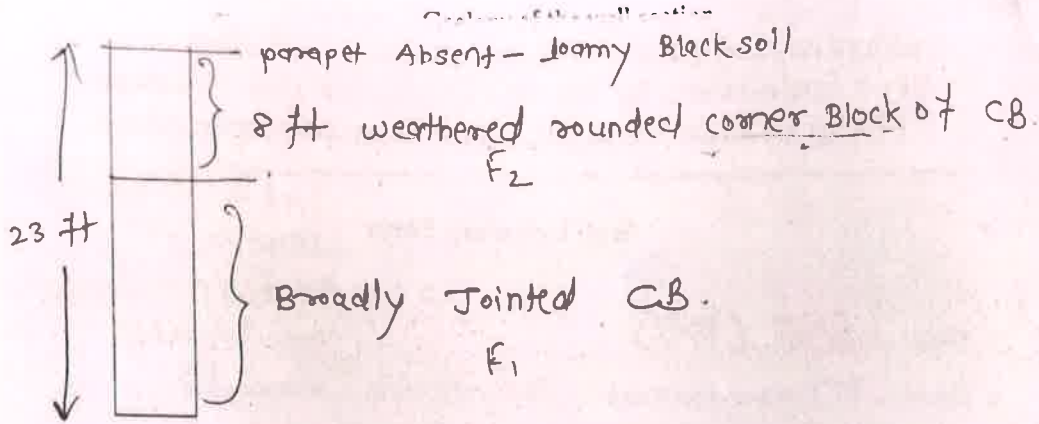 parapet Absent - loamy Black soll
8 ft weathered rounded corner Block of CB.
F2
23 ft
Broadly Jointed CB.
F1